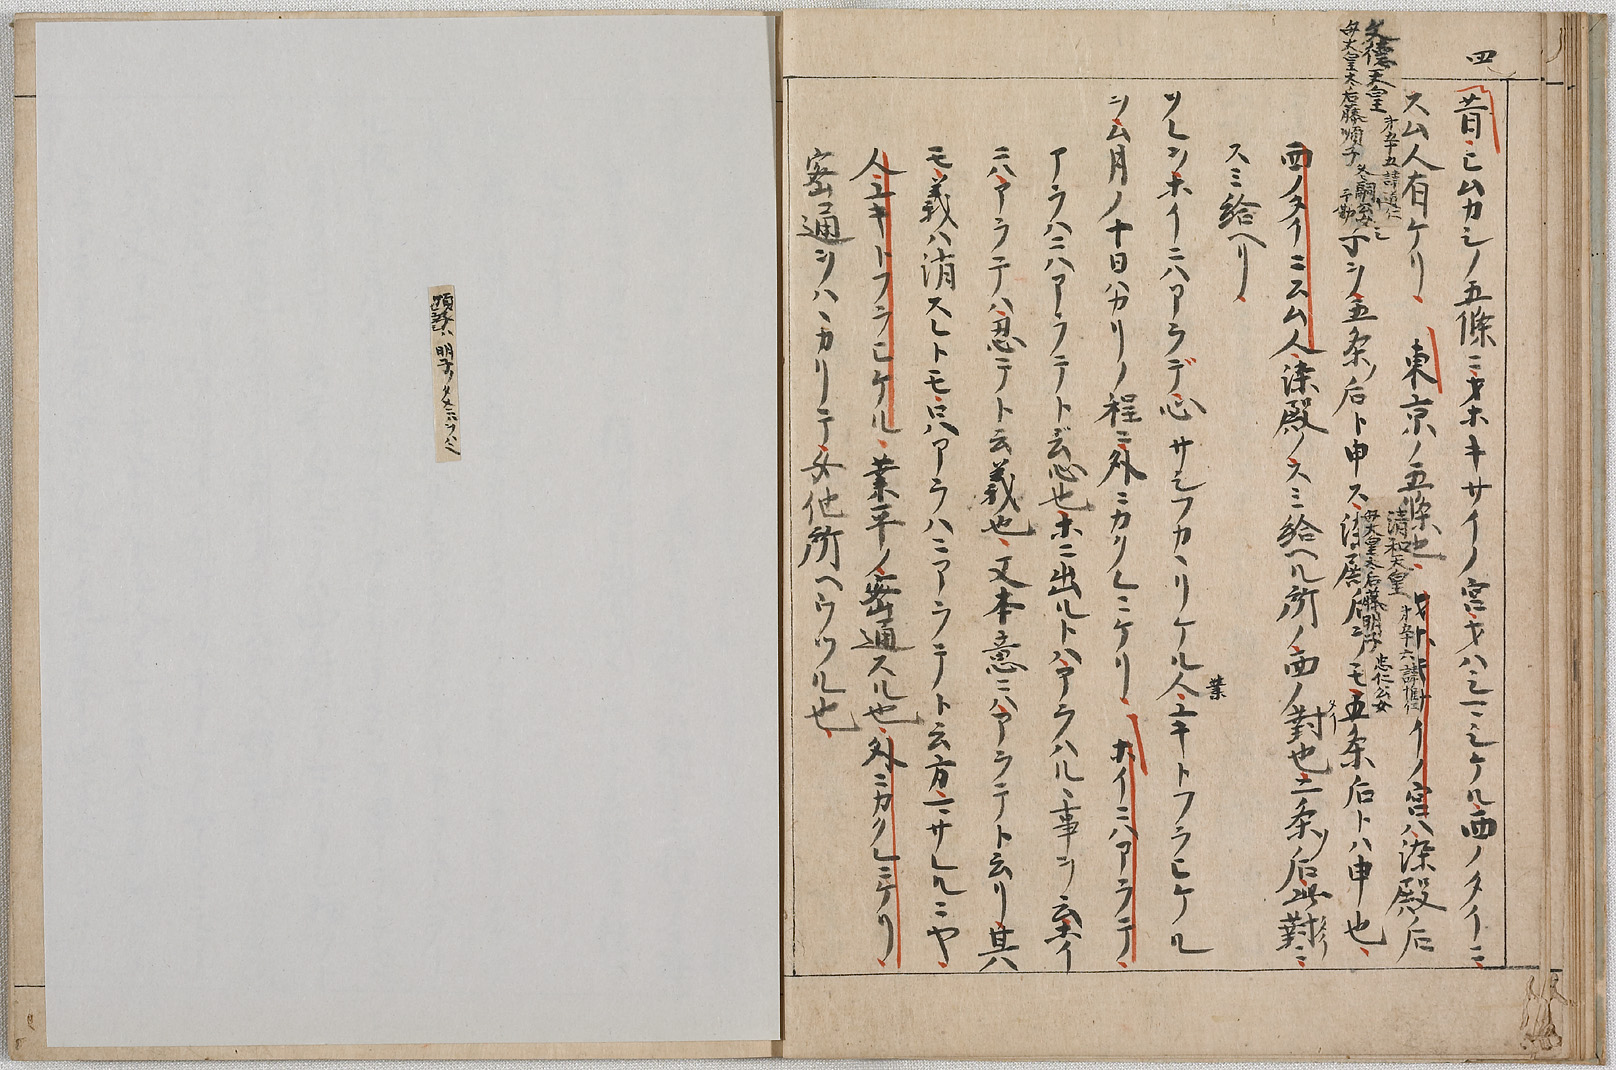 四
昔ヒムカシノ五條ニオホキサイノ宮オハシマシケル西ノタイニ
スム人有ケリ 東京ノ五條也 オホキサイノ宮ハ染殿后
文徳天皇 第五十五諱道仁
母太皇太后藤順子 冬嗣公女
清和天皇 第五十六諱惟仁
母太皇太后藤明子 忠仁公女
ヲ五条ノ后ト申ス 染殿后ヲモ五条后トハ申也
西ノタイニスム人 染殿ノスミ給ヘル所ノ西ノ對也 二条ノ后此對ニ
タイ
スミ給ヘリ
ソレヲホイニハアラデ心サシフカヽリケル人ユキトフラヒケル
業
ヲム月ノ十日ハカリノ程ニ外ニカクレニケリ ホイニハアラテ
アラハニハアラテト云心也 ホニ出ルトハアラハルヽ事ヲ云 ホイ
ニハアラテハ忍テト云義也 又本意ニハアラテト云リ 其ハ
モ義ハ消スレトモ只ハアラハニアラテト云方ニサレルニヤ
人ユキトフラヒケル 業平ノ密通スル也 外ニカクレニケリ
密通ヲハヽカリテ女他所ヘウツル也
順子ハ 明子ノタメニハ